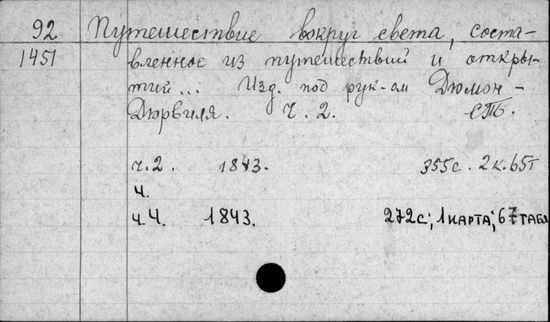 92 Путешествие вокруг света, соста-
1451 вленное из путешествий и откры-
тий... Изд. под рук-ом Дюмон-
Дюрвиля. Ч. 2. СПб.
ч.2. 1843. 355с. 2к. 65т
ч.
ч.4. 1843. 272с; 1 карта; 67 табл